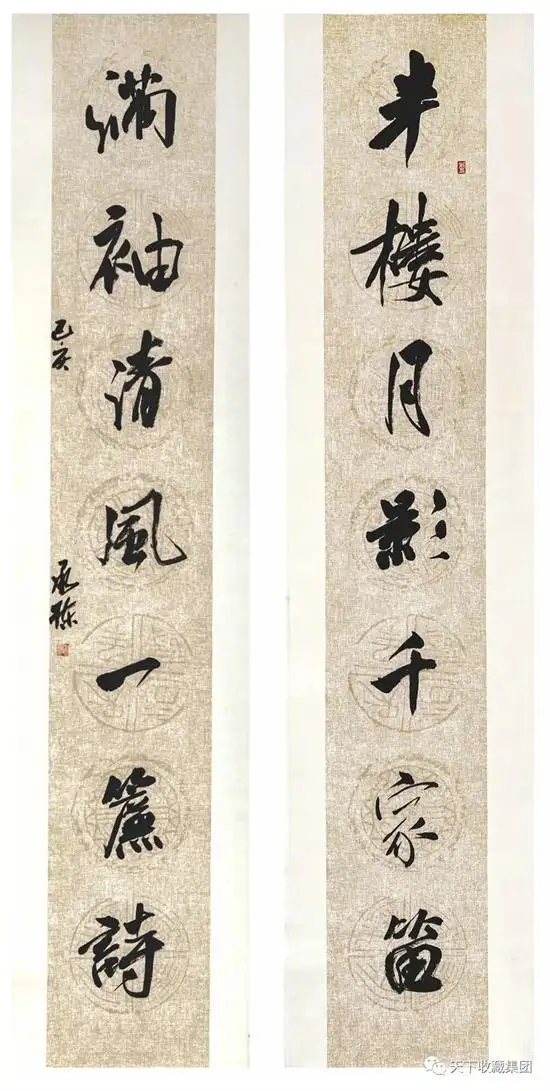 半樓月影千家笛
滿袖清風一簾詩
己亥
天下收藏集团